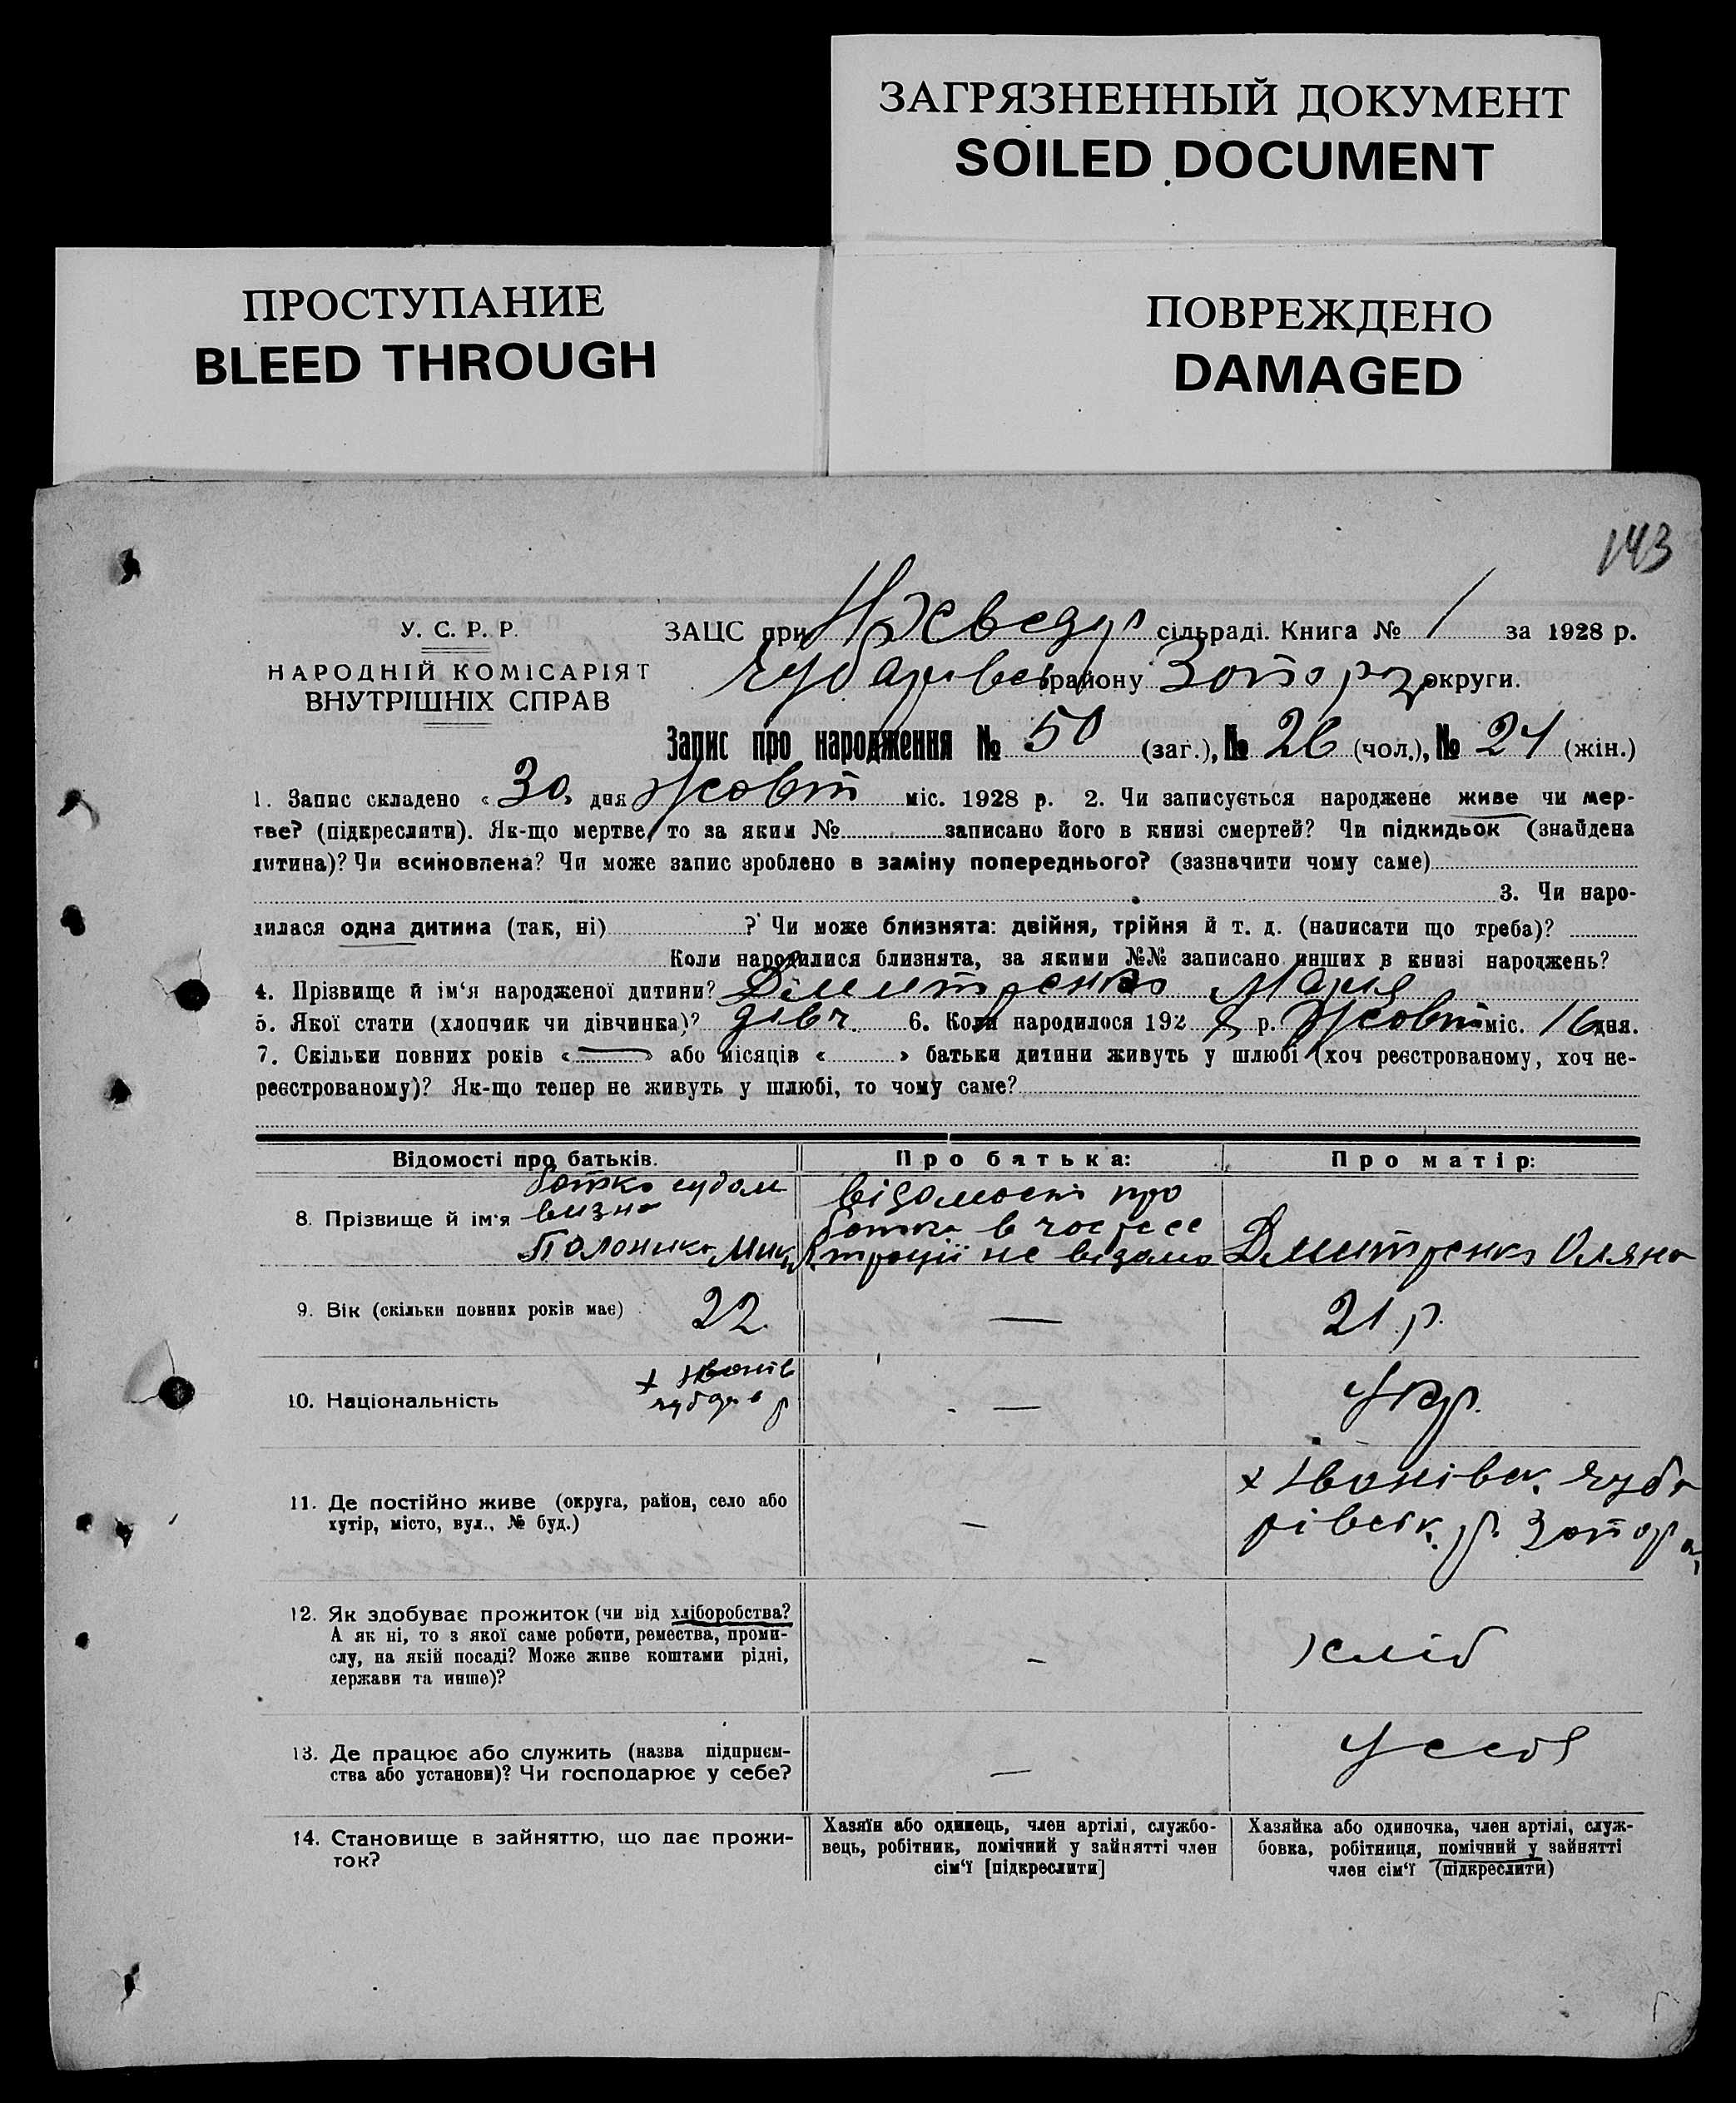 ЗАГРЯЗНЕННЫЙ ДОКУМЕНТ
SOILED DOCUMENT
ПРОСТУПАНИЕ
BLEED THROUGH
ПОВРЕЖДЕНО
DAMAGED
143
У. С. Р. Р.
НАРОДНІЙ КОМІСАРІЯТ
ВНУТРІШНІХ СПРАВ
ЗАЦС при сільраді. Книга № 1 за 1928 р.
Чубарівськ району Запоріз округи.
Запис про народження № 50 (заг.), № 26 (чол.), № 24 (жін.)
1. Запис складено « 30 » дня Жовт міс. 1928 р. 2. Чи записується народжене живе чи мер-
тве? (підкреслити). Як-що мертве, то за яким № записано його в книзі смертей? Чи підкидьок (знайдена
дитина)? Чи всиновлена? Чи може запис зроблено в заміну попереднього? (зазначити чому саме)
3. Чи наро-
дилася одна дитина (так, ні) ? Чи може близнята: двійня, трійня й т. д. (написати що треба)?
Коли народилися близнята, за якими №№ записано инших в книзі народжень?
4. Прізвище й ім‘я народженої дитини? Дмитренко Марія
5. Якої стати (хлопчик чи дівчинка)? дівч. 6. Коли народилося 192 8 р. Жовт міс. 16 дня.
7. Скільки повних років « — » або місяців « » батьки дитини живуть у шлюбі (хоч реєстрованому, хоч не-
реєстрованому)? Як-що тепер не живуть у шлюбі, то чому саме?
Відомості про батьків.
Про батька:
Про матір:
батько судом
визна
8. Прізвище й ім‘я
відомості про
батька в час реєс
трації не відомо
Дмитренко Оляна
9. Вік (скільки повних років має) 22 — 21 р.
х Іванів
чубарів р
10. Національність — Укр.
11. Де постійно живе (округа, район, село або
хутір, місто, вул., № буд.)
—
х Іванівск. Чуба
рівськ. р. Запор
12. Як здобуває прожиток (чи від хліборобства?
А як ні, то з якої саме роботи, ремества, проми-
слу, на якій посаді? Може живе коштами рідні,
держави та инше)?
—
хліб
13. Де працює або служить (назва підприєм-
ства або установи)? Чи господарює у себе?
—
У себе
14. Становище в зайняттю, що дає прожи-
ток?
Хазяїн або одинець, член артілі, службо-
вець, робітник, помічний у зайнятті член
сім‘ї [підкреслити]
Хазяйка або одиночка, член артілі, служ-
бовка, робітниця, помічний у зайнятті
член сім‘ї (підкреслити)